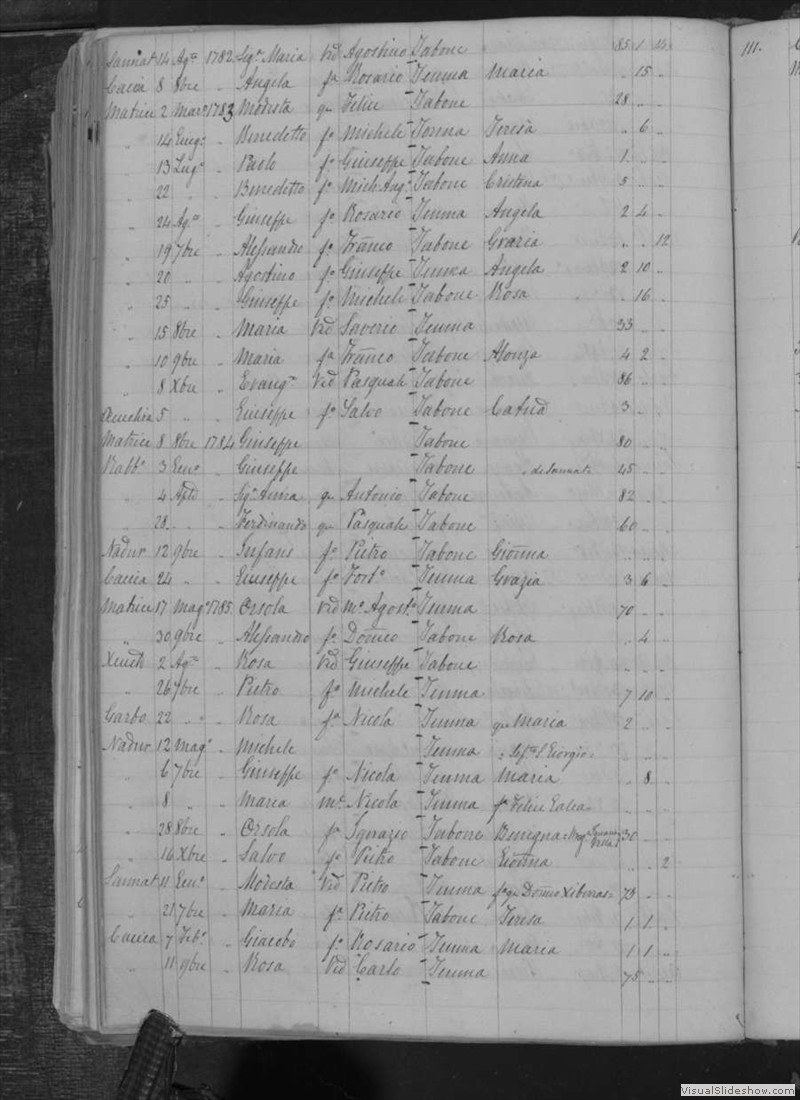 Sannat 14 Agto 1782 Sigra Maria Vid Agostino Tabone 85 1 14
111.
Caccia 8 8bre " Angela fa Rosario Temma Maria " 15 "
Matrice 2 Marzo 1783 Modesta qm Felice Tabone 28 " "
" 14 Giugo " Benedetto fo Michele Temma Teresa " 6 "
" 13 Lugo " Paolo fo Giuseppe Tabone Anna 1 " "
" 22 " " Benedetto fo Mich Ango Tabone Cristina 5 " "
" 24 Agto " Giuseppe fo Rosario Temma Angela 2 4 "
" 19 7bre " Alessandro fo Franco Tabone Grazia " " 12
" 20 " " Agostino fo Giuseppe Temma Angela 2 10 "
" 25 " " Giuseppe fo Michele Tabone Rosa " 16 "
" 15 8bre " Maria Vid Saverio Temma 33 " "
" 10 9bre " Maria fa Franco Tabone Alonza 4 2 "
" 8 Xbre " Evanga Vid Pasquale Tabone 86 " "
5 " " Giuseppe fo Salvo Tabone Catnā 3 " "
Matrice 8 8bre 1784 Giuseppe Tabone 80 " "
Rabto 3 Geno " Giuseppe Tabone de Sannat 45 " "
" 4 Aple " Siga Anna qm Antonio Tabone 82 " "
" 28 " " Ferdinando qm Pasquale Tabone 60 " "
Nadur 12 9bre " Infans fo Pietro Tabone Gioñna " " "
Caccia 24 " " Giuseppe fo Forto Temma Grazia 3 6 "
Matrice 17 Mago 1785 Orsola Vid Mo Agosto Temma 70 " "
" 30 9bre " Alessandro fo Doñco Tabone Rosa " 4 "
Xeuch 2 Agto " Rosa Vid Giuseppe Tabone " " "
" 26 7bre " Pietro fo Michele Temma 7 10 "
Garbo 22 " " Rosa fa Nicola Temma qm Maria 2 " "
Nadur 12 Mago " Michele Temma S. Giorgio " " "
" 6 7bre " Giuseppe fo Nicola Temma Maria " 8 "
" 8 " " Maria Me Nicola Temma fa Felice Galea " " "
" 28 8bre " Orsola fa Ignazio Tabone Benigna 30 " "
" 16 Xbre " Salvo fo Pietro Tabone Gioñna " " 2
Sannat 11 Geno " Modesta Vid Pietro Temma fa qm Doñco Xiberras 73 " "
" 21 7bre " Maria fa Pietro Tabone Teresa 1 1 "
Caccia 7 Febo " Giacobo fo Rosario Temma Maria 1 1 "
" 11 9bre " Rosa Vid Carlo Temma 75 " "
VisualSlideshow.com